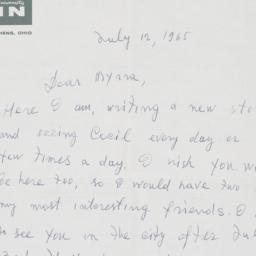 University
IN
HENS, OHIO
July 12, 1965
Dear Myrna,
Here I am, writing a new sto
and seeing Cecil every day or
few times a day. I wish you w
be here too, so I would have two
my most interesting friends. I
to see you in the city after